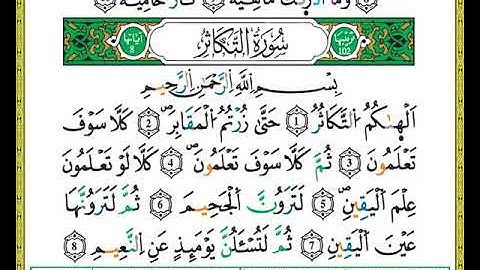 وَمَآ اَدْرٰىكَ مَاهِيَهْ نَارٌ حَامِيَةٌ
ترتيبها 102 سُورَةُ التَّكَاثُرِ آياتها 8
بِسْمِ اللّٰهِ الرَّحْمٰنِ الرَّحِيمِ
اَلْهٰىكُمُ التَّكَاثُرُ 1 حَتّٰى زُرْتُمُ الْمَقَابِرَ 2 كَلَّا سَوْفَ
تَعْلَمُونَ 3 ثُمَّ كَلَّا سَوْفَ تَعْلَمُونَ 4 كَلَّا لَوْ تَعْلَمُونَ
عِلْمَ الْيَقِينِ 5 لَتَرَوُنَّ الْجَحِيمَ 6 ثُمَّ لَتَرَوُنَّهَا
عَيْنَ الْيَقِينِ 7 ثُمَّ لَتُسْـَٔلُنَّ يَوْمَئِذٍ عَنِ النَّعِيمِ 8